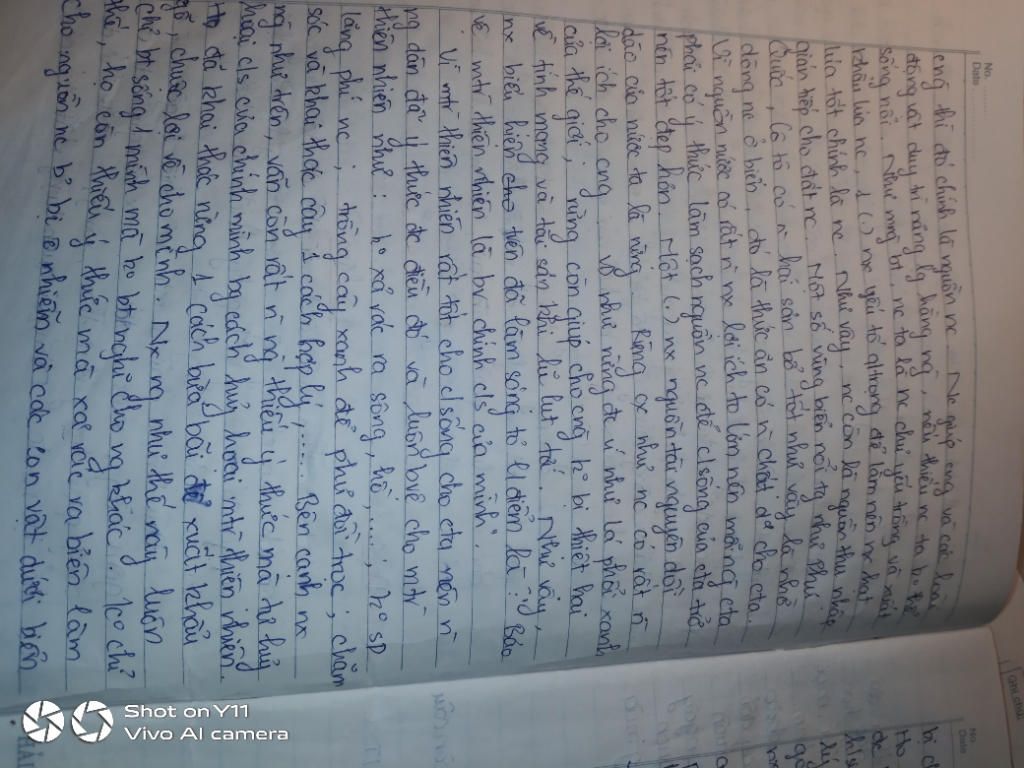 No. ........
Date ........
cng thì đó chính là nguồn nc. Nc giúp cng và các loài
động vật duy trì năng lg hằng ng, nếu thiếu nc ta ko thể
sống nổi. Như mng bt, nc ta là nc chủ yếu trồng và xuất
khẩu lúa nc, 1 (.) nx yếu tố qtrọng để làm nên nx hạt
lúa tốt chính là nc. Như vậy, nc còn là nguồn thu nhập
gián tiếp cho đất nc. Một số vùng biển nổi tg như Phú
Quốc, Cô tô có n hải sản bổ tốt như vậy là nhờ
dòng nc ở biển, đó là thức ăn có n chất d² cho cta.
Vì nguồn nước có rất n nx lợi ích to lớn nên mỗi cta
phải có ý thức làm sạch nguồn nc để c/sống của cta trở
nên tốt đẹp hơn. Một (.) nx nguồn tài nguyên dồi
dào của nước ta là rừng. Rừng cx như nc có rất n
lợi ích cho cng. Vd như rừng đc ví như là phổi xanh
của thế giới; rừng còn giúp cho cng k bị thiệt hại
về tính mạng và tài sản khi lũ lụt tới. Như vậy,
nx biểu hiện trên đã làm sáng tỏ l/điểm là: Bảo
vệ mtr thiên nhiên là bv chính c/s của mình.
Vì mtr thiên nhiên rất tốt cho c/sống cho cta nên n
ng dân đã ý thức đc điều đó và luôn bvệ cho mtr
thiên nhiên như: ko xả rác ra sông, hồ,....; ko sd
lãng phí nc; trồng cây xanh để phủ đồi trọc; chăm
sóc và khai thác cây 1 cách hợp lý;..... Bên cạnh nx
ng như trên, vẫn còn rất n ng thiếu ý thức mà tự huỷ
hoại c/s của chính mình bg cách huỷ hoại mtr thiên nhiên.
Họ đã khai thác rừng 1 cách bừa bãi để xuất khẩu
gỗ, chuộc lợi về cho mình. Nx ng như thế này luôn
chỉ bt sống 1 mình mà ko bt nghĩ cho ng khác. Ko chỉ
thế, họ còn thiếu ý thức mà xả rác ra biển làm
cho nguồn nc bị ô nhiễm và các con vật dưới biển
Shot on Y11
Vivo AI camera